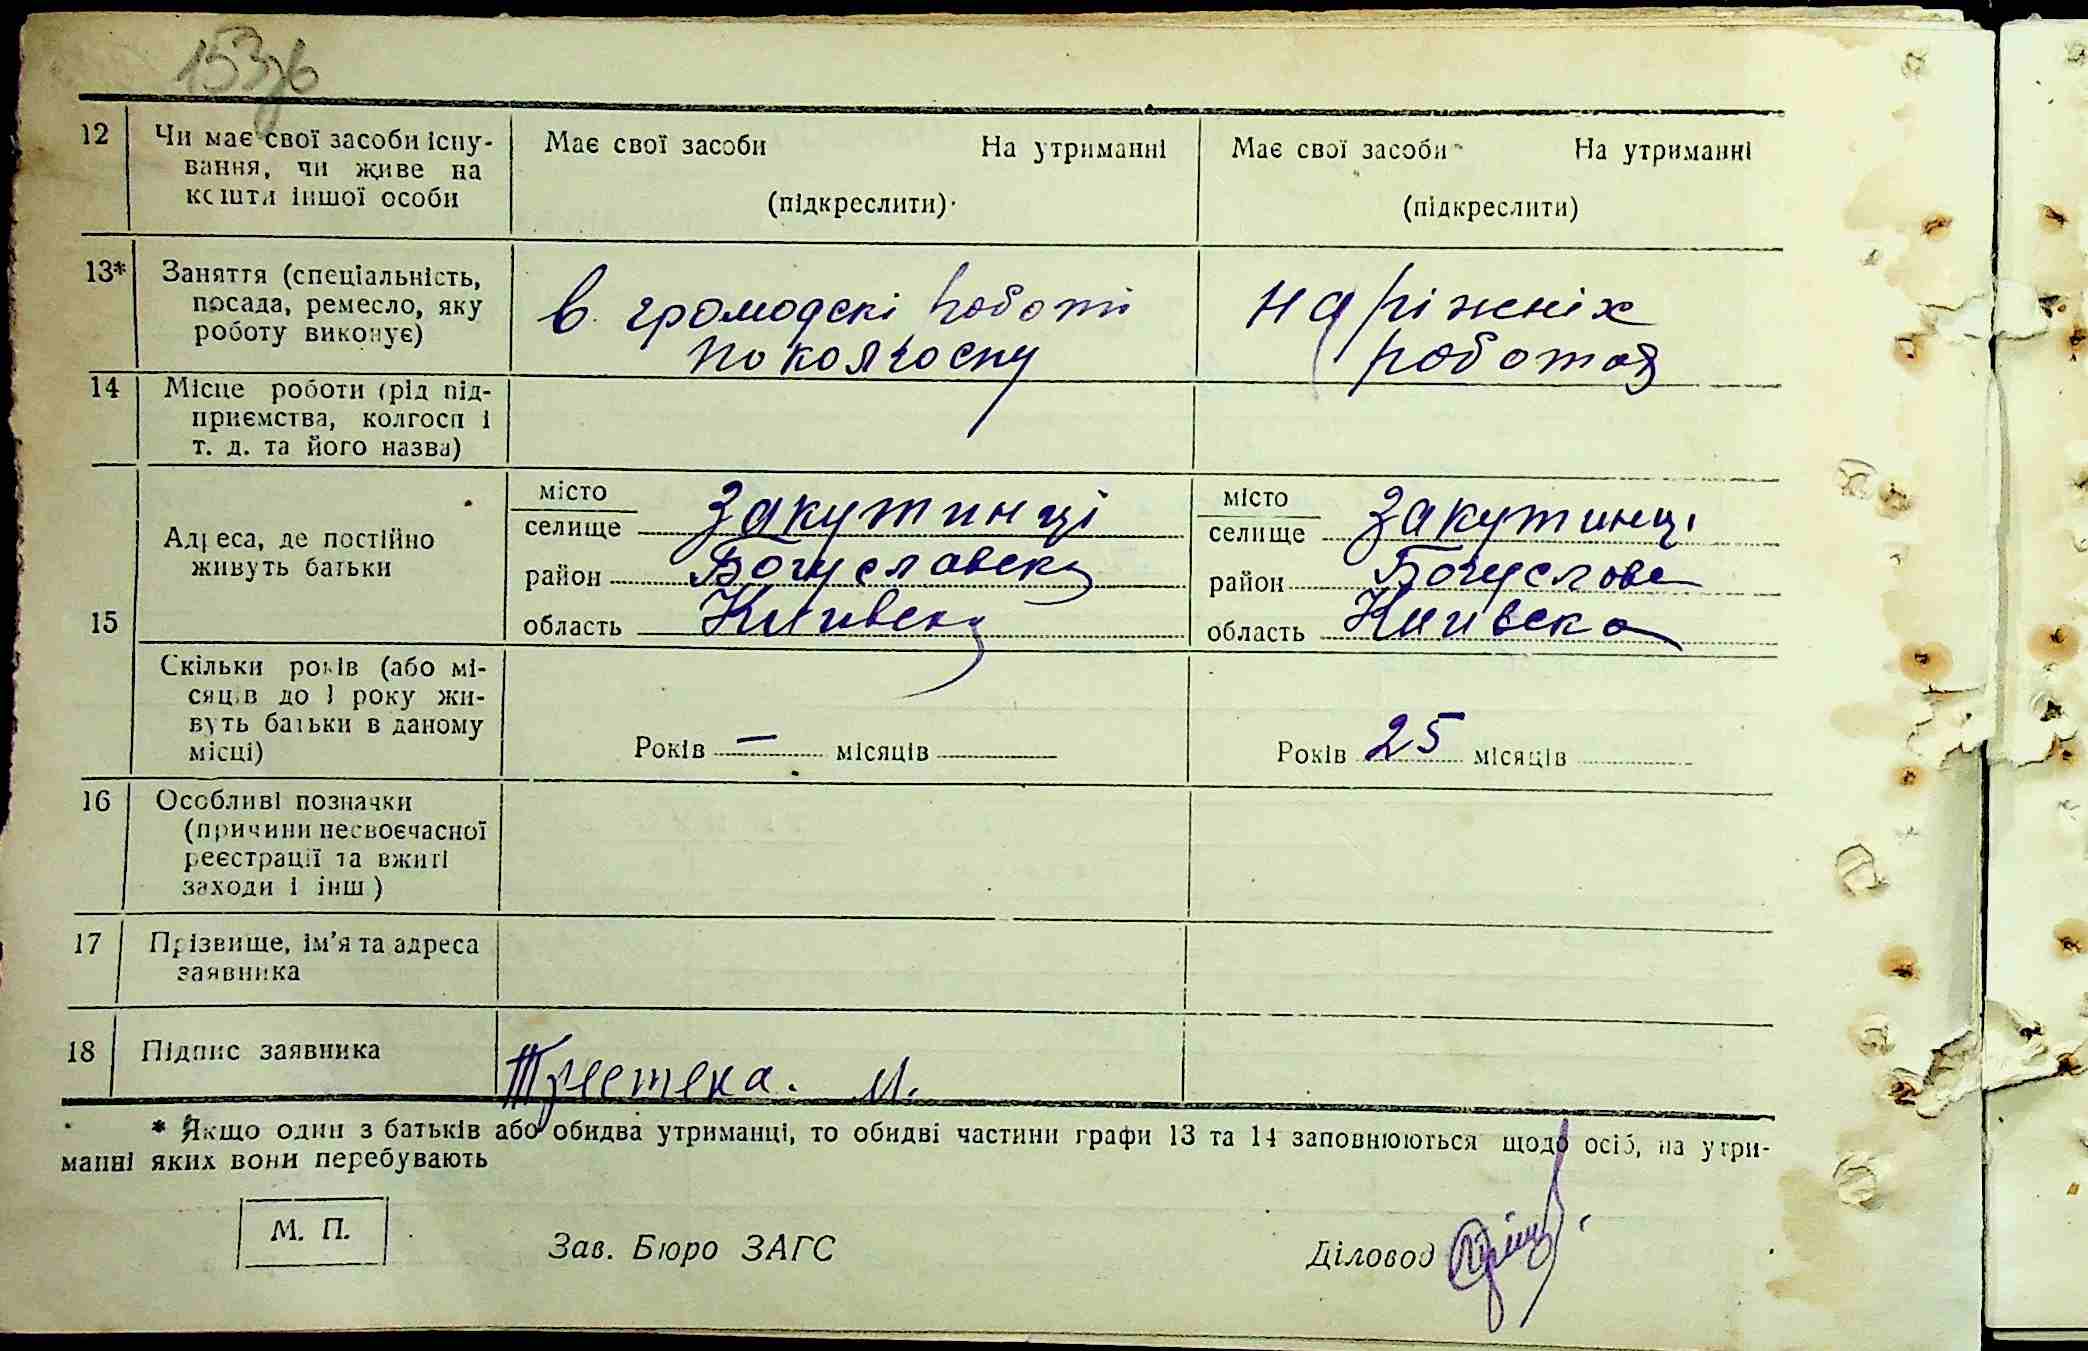 153зв
12 Чи має свої засоби існу- Має свої засоби На утриманні Має свої засоби На утриманні
вання, чи живе на
кошти іншої особи (підкреслити) (підкреслити)
13* Заняття (спеціальність, в громодскі роботі на ріжніх
посада, ремесло, яку по колгоспу роботах
роботу виконує)
14 Місце роботи (рід під-
приємства, колгосп і
т. д. та його назва)
15 Адреса, де постійно
живуть батьки
місто
селище Закутинці
район Богуславск
область Київск
місто
селище Закутинці
район Богуслове
область Київска
Скільки років (або мі-
сяців до 1 року жи-
вуть батьки в даному
місці)
Років — місяців
Років 25 місяців
16 Особливі позначки
(причини несвоєчасної
реєстрації та вжиті
заходи і інш)
17 Прізвище, ім'я та адреса
заявника
18 Підпис заявника М.
* Якщо один з батьків або обидва утриманці, то обидві частини графи 13 та 14 заповнюються щодо осіб, на утри-
манні яких вони перебувають
М. П.
Зав. Бюро ЗАГС
Діловод